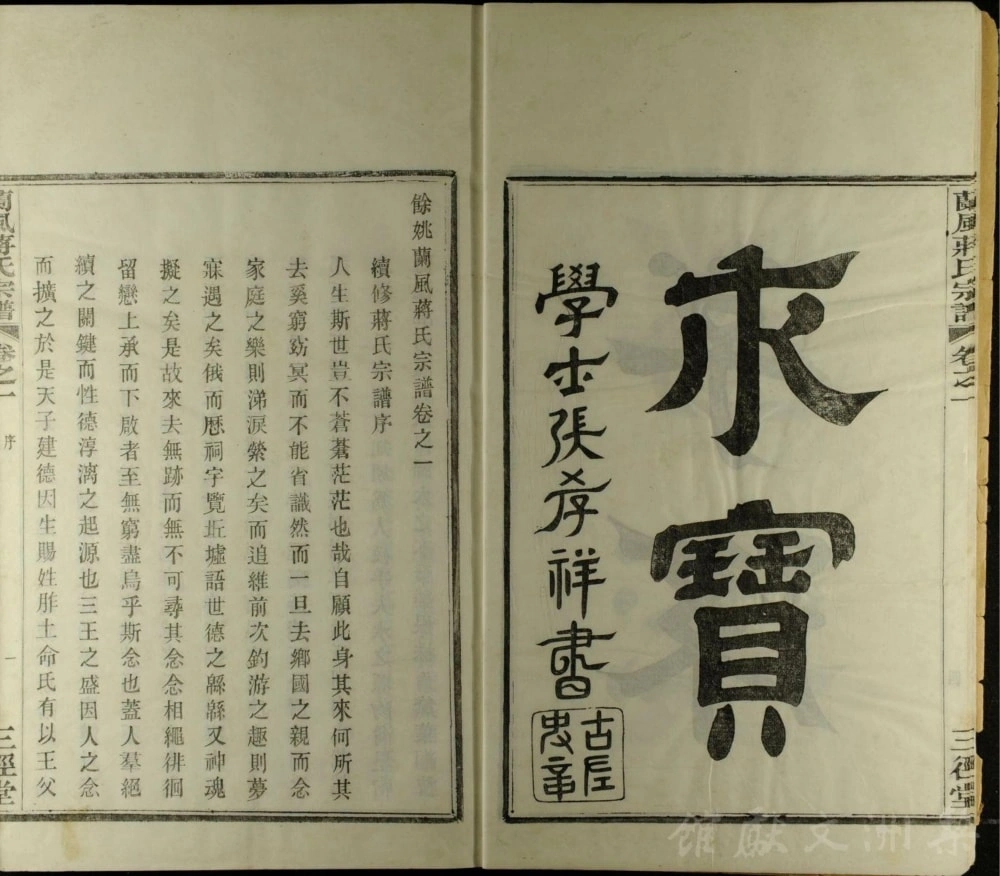 蘭風蔣氏宗譜 卷之一 三徑堂
永寶
學士張孝祥書
餘姚蘭風蔣氏宗譜卷之一
續修蔣氏宗譜序
人生斯世豈不蒼蒼茫茫也哉自顧此身其來何所其
去奚窮窈冥而不能省識然而一旦去鄉國之親而念
家庭之樂則涕淚縈之矣而追維前次釣游之趣則夢
寐遇之矣俄而愿祠宇覽坵墟語世德之緜緜又神魂
擬之矣是故來去無跡而無不可尋其念念相繩徘徊
留戀上承而下啟者至無窮盡烏乎斯念也蓋人羣絕
續之關鍵而性德淳漓之起源也三王之盛因人之念
而擴之於是天子建德因生賜姓胙土命氏有以王父
蘭風蔣氏宗譜 卷之一 序 一 三徑堂